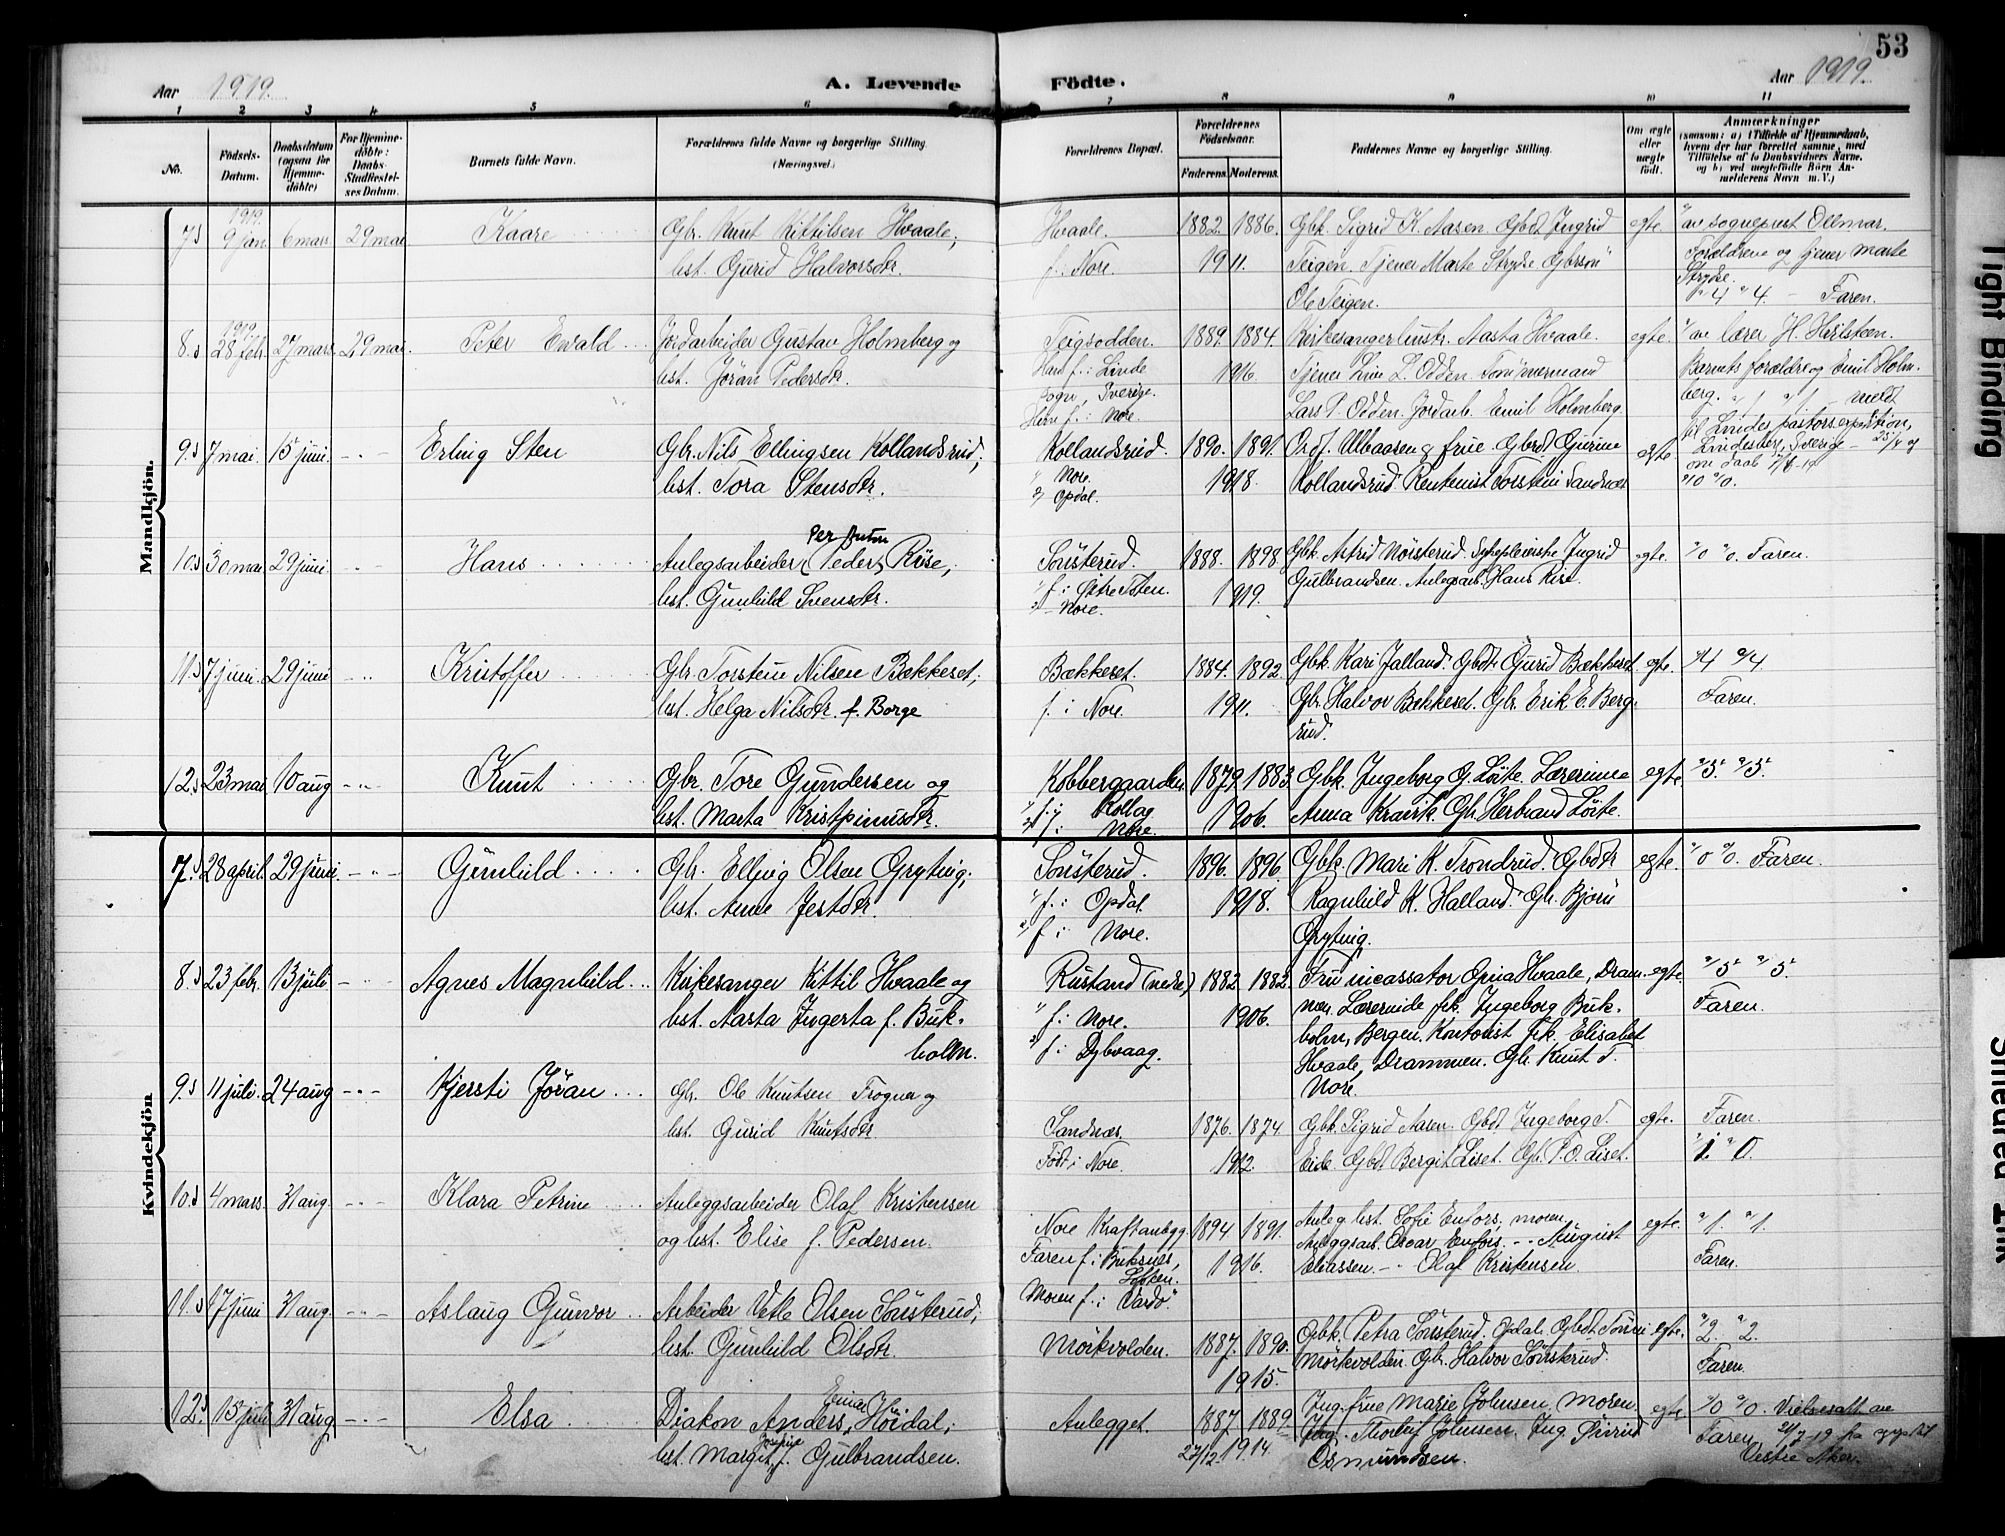 53
Aar 1919.
A. Levende Födte.
Aar 1919.
1 2 3 4 5 6 7 8 9 10 11
No.
Födsels-Datum.
Daabsdatum (ogsaa for Hjemmedöbte)
For Hjemmedöbte: Daabs-Stadfæstelses Datum.
Barnets fulde Navn.
Forældrenes fulde Navne og borgerlige Stilling. (Næringsvei.)
Forældrenes Bopæl.
Forældrenes Födselsaar.
Faderens. Moderens.
Faddernes Navne og borgerlige Stilling.
Om ægte eller uægte födt.
Anmærkninger
(saasom: a) i Tilfælde af Hjemmedaab, hvem der har forrettet samme, med Tilföielse af to Daabsvidners Navne, og b) ved uægtefödte Börn Anmelderens Navn m. V.)
Mandkjön.
7. 1919. 9 jan. 6 mars. 29 mai Kaare
Gbr. Knut Kittilsen Hvaale,
bst. Gurid Halvorsdtr.
Hvaale. f. i Nore. 1882. 1886. 1911.
Gbk. Sigrid K. Aasen. Gbdt Ingrid
Teigen. Tjener Marte Stryke Gbrsön
Ole Teigen.
egte. av sogneprest Ollmar.
Forældrene og tjener Marte
Stryke.
4 4 - Faren.
8. 1919. 28 febr. 27 mars. 29 mai. Peter Ewald
Jordarbeider Gustav Holmberg og
bst. Jöran Pedersdtr.
Teigsodden. Han f. i Linde
sogn, Sverige.
Hun f. i Nore. 1889. 1884. 1916.
Kirkesangerhustr. Aasta Hvaale.
Tjener Live L. Odden. Tömmermand
Lars P. Odden. Jordarb. Emil Holmberg.
egte. av lærer H. Halsteen.
Barnets forældre og Emil Holmberg. meldt
til Lindes pastorsexpedition,
Lindesberg, Sverige
9. 7 mai. 15 juni. - " - Erling Sten
Gbr. Nils Ellingsen Kollandsrud,
bst. Tora Stensdtr.
Kollandsrud. Nore. Opdal. 1890. 1891. 1918.
Ordf. Ulbaasen og frue. Gbrdt Gurine
Kollandsrud. Rentenist Torstein Sandnæs
egte. 0 0.
10. 30 mai. 29 juni. Hans
Per Anton
Anlegsarbeider (Peder) Riise,
bst. Gunhild Svensdtr.
Sönsterud. f. i Østre Toten. - Nore. 1888. 1898 1919.
Gbk. Astrid Nörsterud. Sykepleierske Ingrid
Gulbrandsen. Anlegsarb. Hans Riise.
egte. 0 0. Faren.
11. 7 juni. 29 juni Kristoffer
Gbr. Torstein Nilsen Bækkeset,
bst. Helga Nilsdtr. f. Borge
Bækkeset. f. i Nore. 1884. 1892 1911.
Gbk. Kari Jalland. Gbdt. Gurid Bækkeset
Gbr. Halvor Bækkeset. Gbr. Erik E. Bergrud.
egte. 4 4 Faren.
12. 23 mai. 10 aug - " - Knut
Gbr. Tore Gundersen og
bst. Marta Kristpinusdtr.
Kobbergaarden f. i Rollag f. i Nore. 1879. 1883. 1906.
Gbk. Ingeborg G. Löite. Lærerinne
Anna Kravik. Gbr. Herbrand Löite.
egte. 5. 5.
Kvindekjön
7. 28 april. 29 juni. - " - Gunhild
Gbr. Elling Olsen Gryting,
bst. Anne Jestdtr.
Sönsterud. f. i Opdal. f. i Nore. 1896. 1896. 1918.
Gbk. Mari K. Trondrud. Gbdtr
Ragnhild K. Halland. Gbr. Björn
Gryting.
egte. 0 0. Faren.
8. 23 febr. 13 juli - " - Agnes Magnhild
Kirkesanger Kittil Hvaale og
bst. Aasta Ingerta f. Bukholm.
Rustand (nedre) f. i Nore. f. i Dybvaag. 1882. 1882. 1906.
Fru incassator Guia Hvaale, Drammen. Lærerinde frk. Ingeborg Bukholm, Bergen. Kontorist frk. Elisabet
Hvaale, Drammen. Gbr. Knut T.
Nore.
egte. 5 5. Faren.
9. 11 juli. 24 aug - " - Kjersti Jöran
Gbr. Ole Knutsen Trogna og
bst. Gurid Knutsdtr.
Sandnæs. Födt i Nore. 1876. 1874 1912.
Gbk. Sigrid Aasen. Gbdt Ingeborg T.
Eide. Gbdt Bergit Liset. Gbr. T. O. Liset.
egte. Faren. 1. 0.
10. 4 mars. 31 aug. - " - Klara Petrine
Anleggsarbeider Olaf Kristensen
og bst. Elise f. Pedersen.
Nore Kraftanlegg. Faren f. i Buksnes, Lofoten. Moren f. i Vardö. 1894 1891. 1916.
Anleg. bst. Sofie Enfors, moren,
Anleggsarb. Oscar Enfors. - " - August
Eliassen. - " - Olaf Kristensen.
egte. 1. 1. Faren.
11. 17 juni 31 aug. - " - Aslaug Gunvor
Arbeider Vetle Olsen Sönsterud,
bst. Gunhild Olsdtr.
Mörkvolden. 1887. 1890. 1915.
Gbk. Petra Sönsterud. Opdal. Gbdt. Tonni
Mörkvolden. Gbr. Halvor Sönsterud.
egte. 2. 2. Faren.
12. 15 juli 31 aug. - " - Elsa
Diakon Anders Einar Höidal,
bst. Margit Josefine f. Gulbrandsen.
Anlegget. 1887. 1889. 27/12 1914.
Ing. frue Marie Johnsen, Moren
Ing. Thorleif Johnsen. Ing. Öivind
Osmundsen.
egte. 0 0. Vielsesatt. av
Faren. 21/7-19 fra sognepr. til
Vestre Aker.
Tight Binding
Smeared Ink